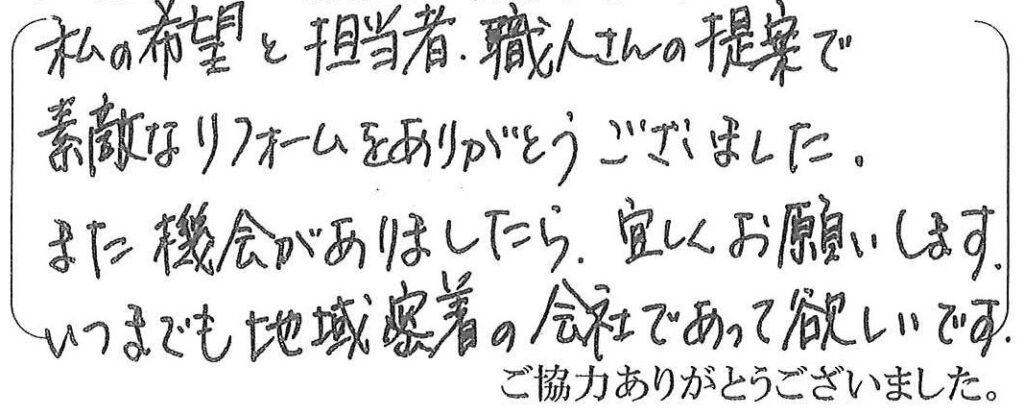 私の希望と担当者.職人さんの提案で
素敵なリフォームをありがとうございました.
また機会がありましたら.宜しくお願いします.
いつまでも地域密着の会社であって欲しいです.
ご協力ありがとうございました。